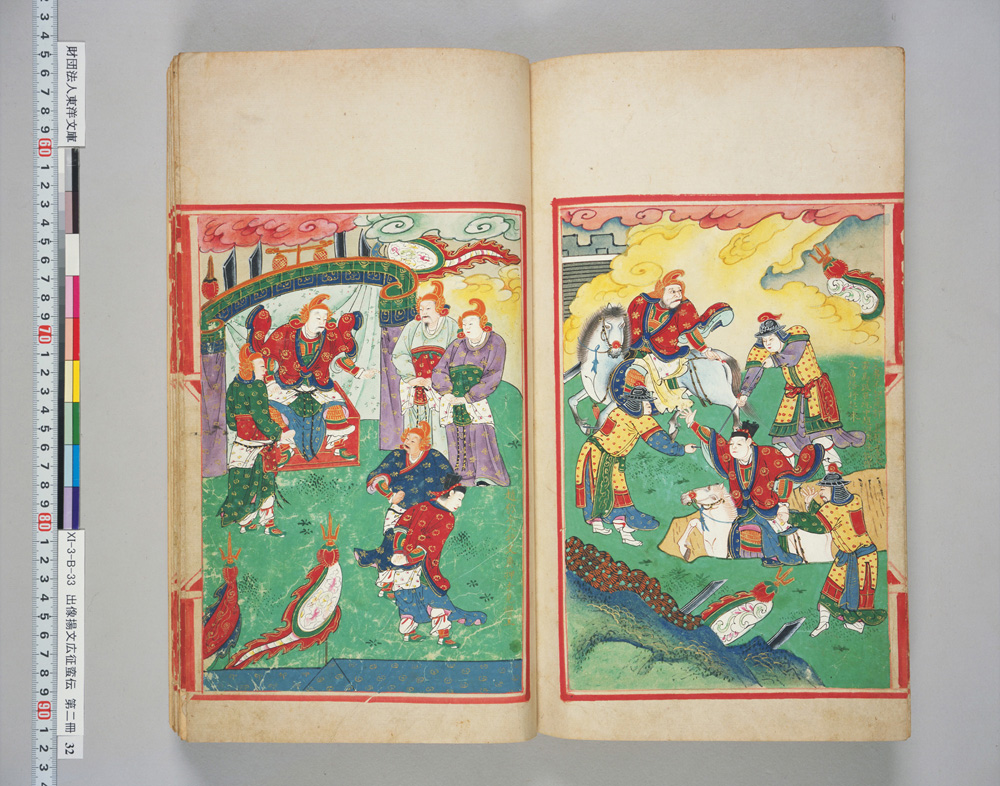 財団法人東洋文庫
XI-3-B-33 出像揚文広征蛮伝 第二冊 32
2 3 4 5 6 7 8 9 60 1 2 3 4 5 6 7 8 9 70 1 2 3 4 5 6 7 8 9 80 1 2 3 4 5 6 7 8 9 90 1 2 3 4